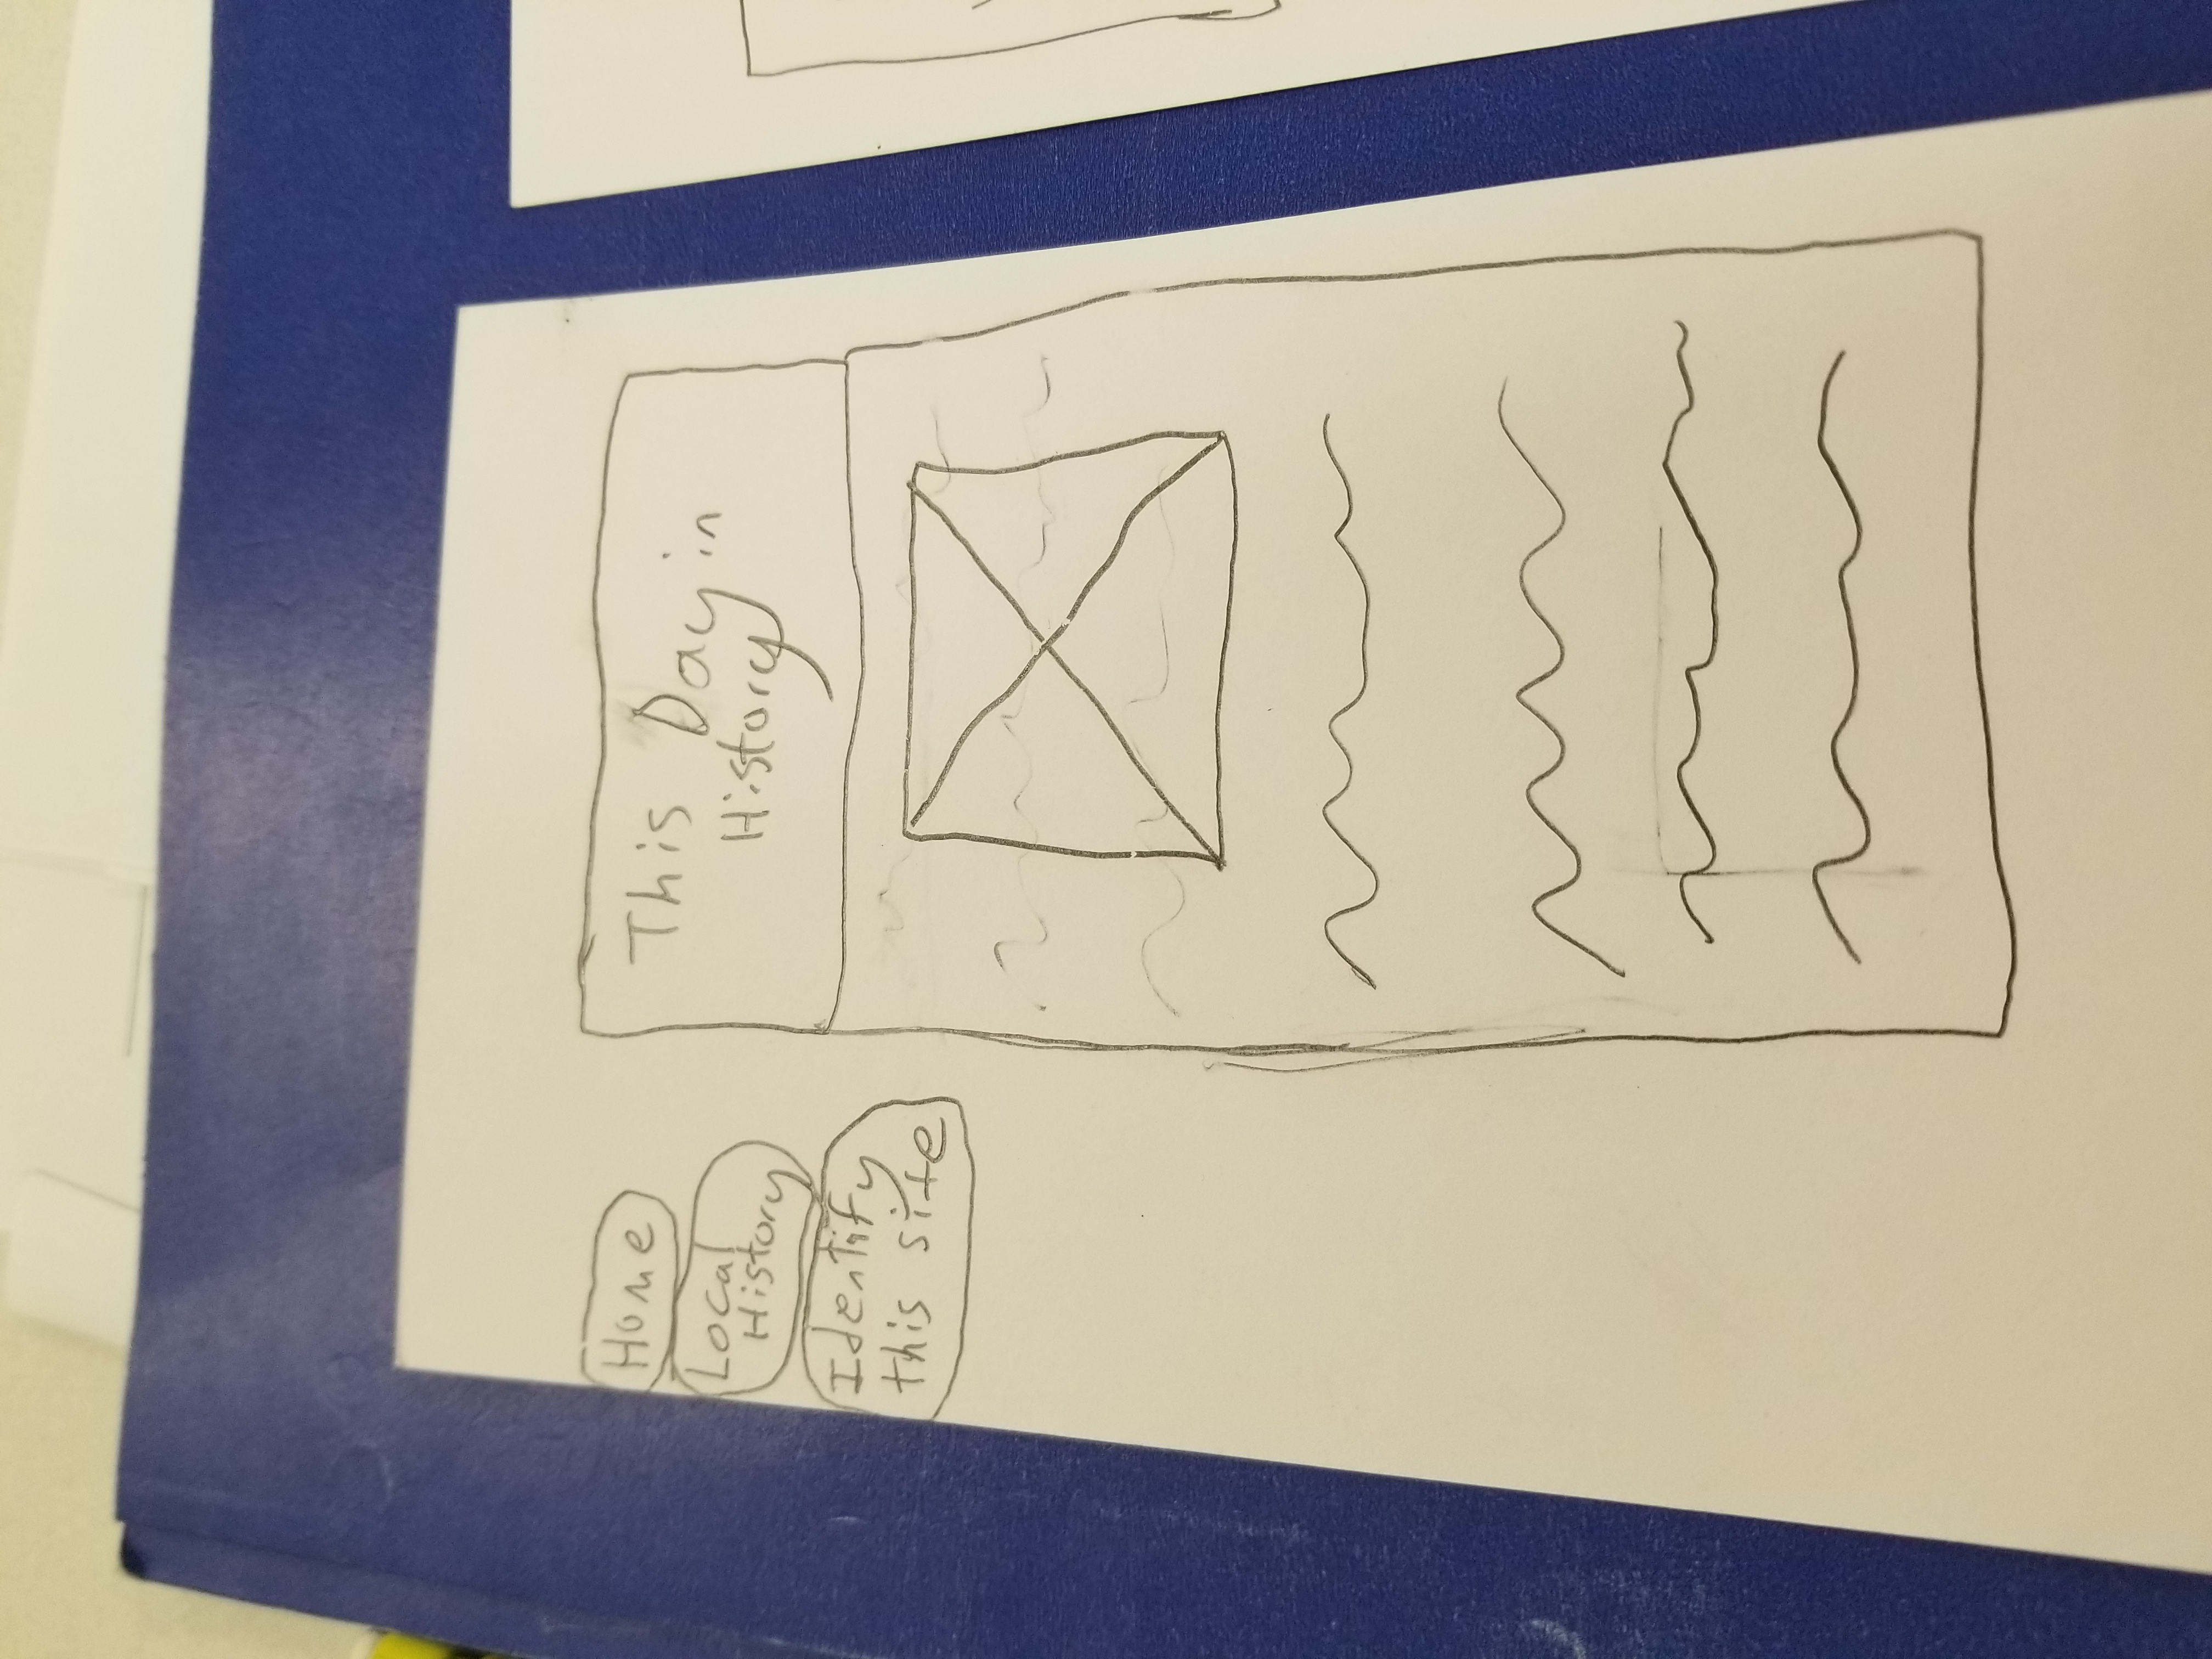 Home
Local
History
Identify
this site
This Day in
History